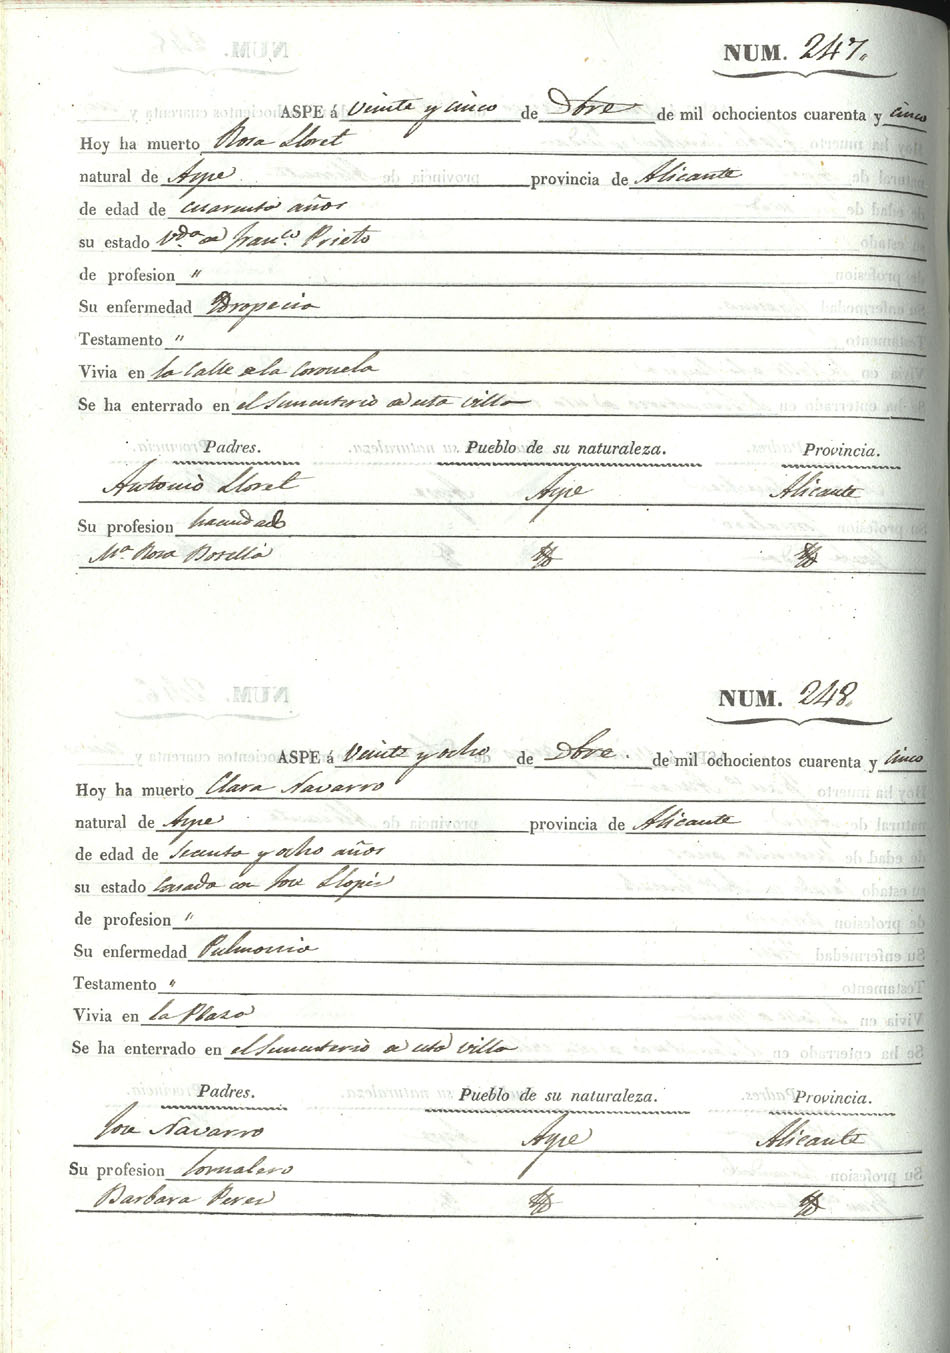 NUM. 247.
ASPE á Veinte y cinco de Dbre de mil ochocientos cuarenta y cinco
Hoy ha muerto Rosa Lloret
natural de Aspe provincia de Alicante
de edad de cuarenta años
su estado Vda de Franco. Prieto
de profesion "
Su enfermedad Ydropecia
Testamento "
Vivia en la Calle de la Coronela
Se ha enterrado en el Sementerio de esta villa
Padres. Pueblo de su naturaleza. Provincia.
Antonio Lloret Aspe Alicante
Su profesion hacendado
Ma Rosa Botella Yd Yd
NUM. 248.
ASPE á Veinte y ocho de Dbre. de mil ochocientos cuarenta y cinco
Hoy ha muerto Clara Navarro
natural de Aspe provincia de Alicante
de edad de y ocho años
su estado Casada con Jose Llopis
de profesion "
Su enfermedad Pulmonia
Testamento "
Vivia en la Plaza
Se ha enterrado en el Sementerio de esta villa
Padres. Pueblo de su naturaleza. Provincia.
Jose Navarro Aspe Alicante
Su profesion Jornalero
Barbara Perez Yd Yd